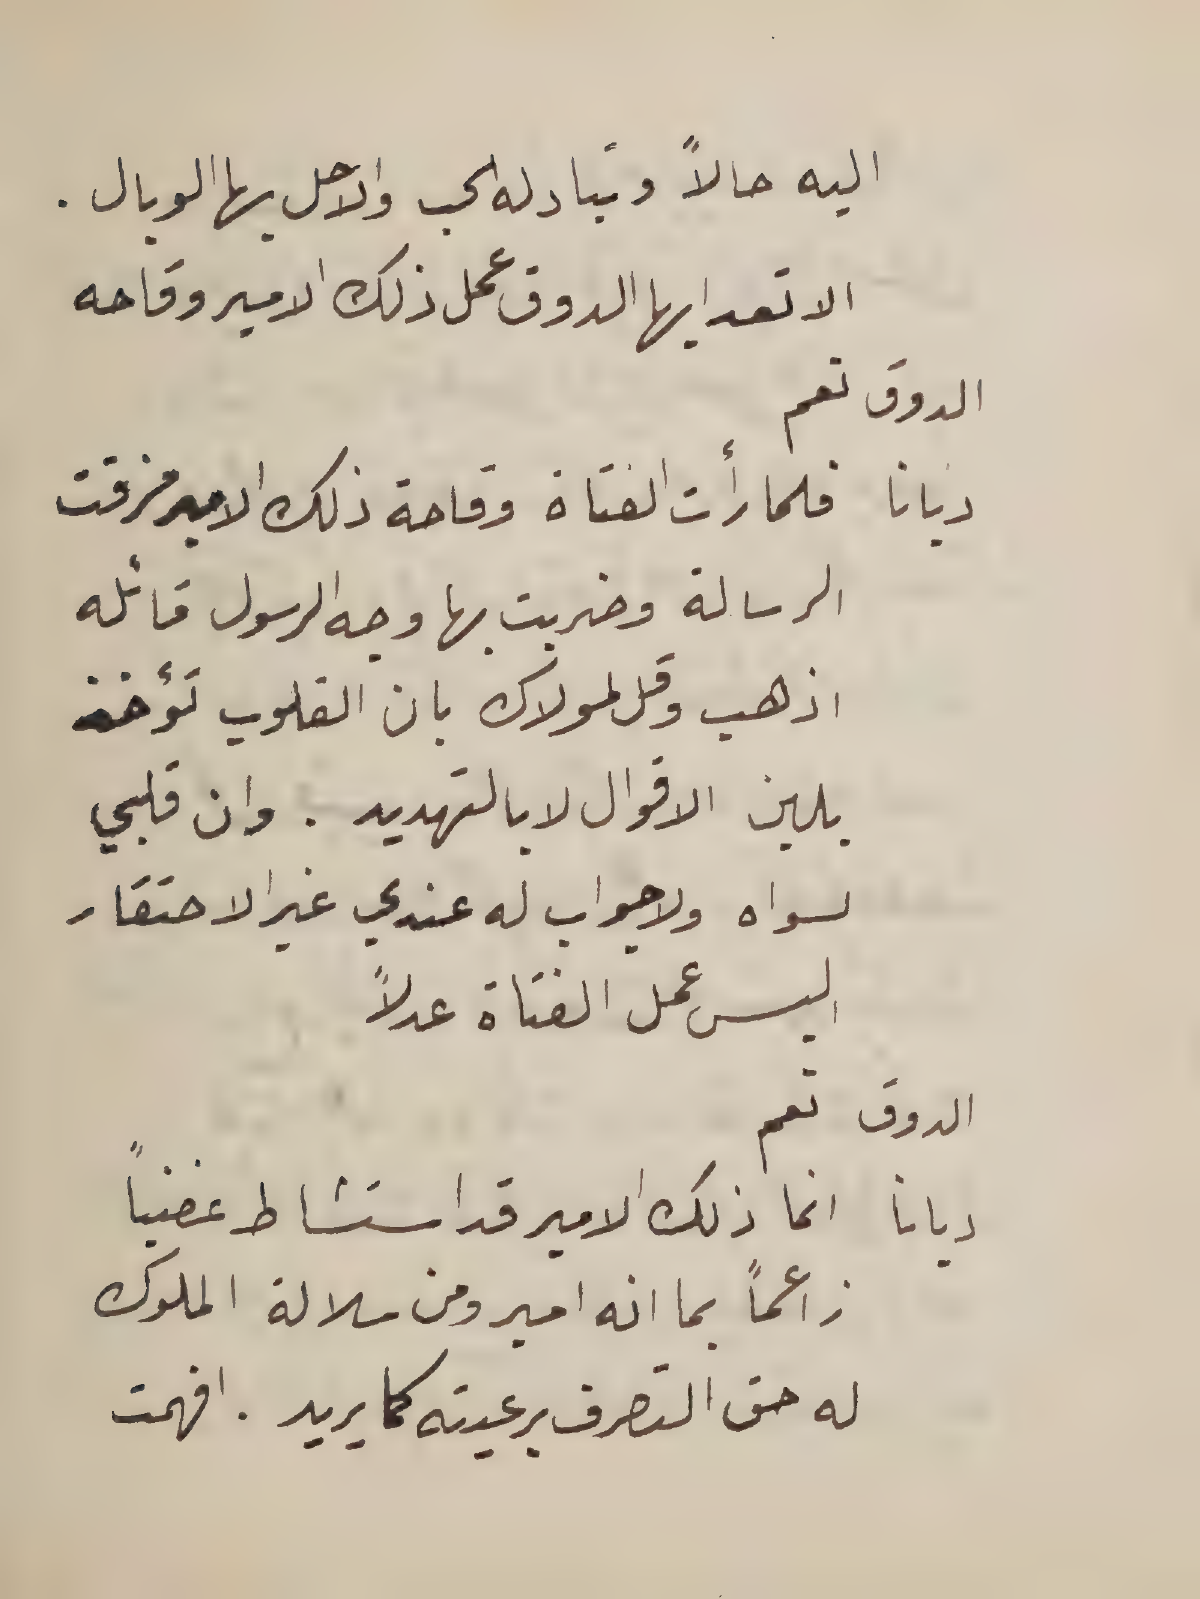 اليه حالاً وتبادله الحب والاحل بها الوبال .
الا تعد ايها الدوق عمل ذلك الامير وقاحه
الدوق نعم
ديانا فلما رأت الفتاة وقاحة ذلك الامير مزقت
الرسالة وضربت بها وجه الرسول قائله
اذهب وقل لمولاك بان القلوب تؤخذ
بلين الاقوال لا بالتهديد . وان قلبي
لسواه ولا جواب له عندي غير الاحتقار
اليس عمل الفتاة عدلاً
الدوق نعم
ديانا انما ذلك الامير قد استشاط غضباً
زاعماً بما انه امير ومن سلالة الملوك
له حق التصرف برعيته كما يريد . افهمت